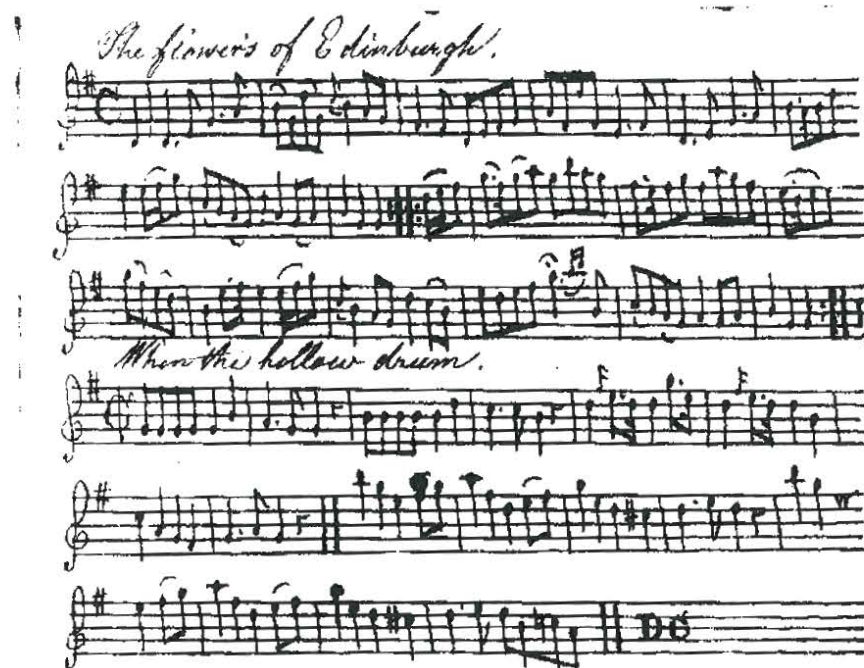 The flowers of Edinburgh.
When the hollow drum.
DC